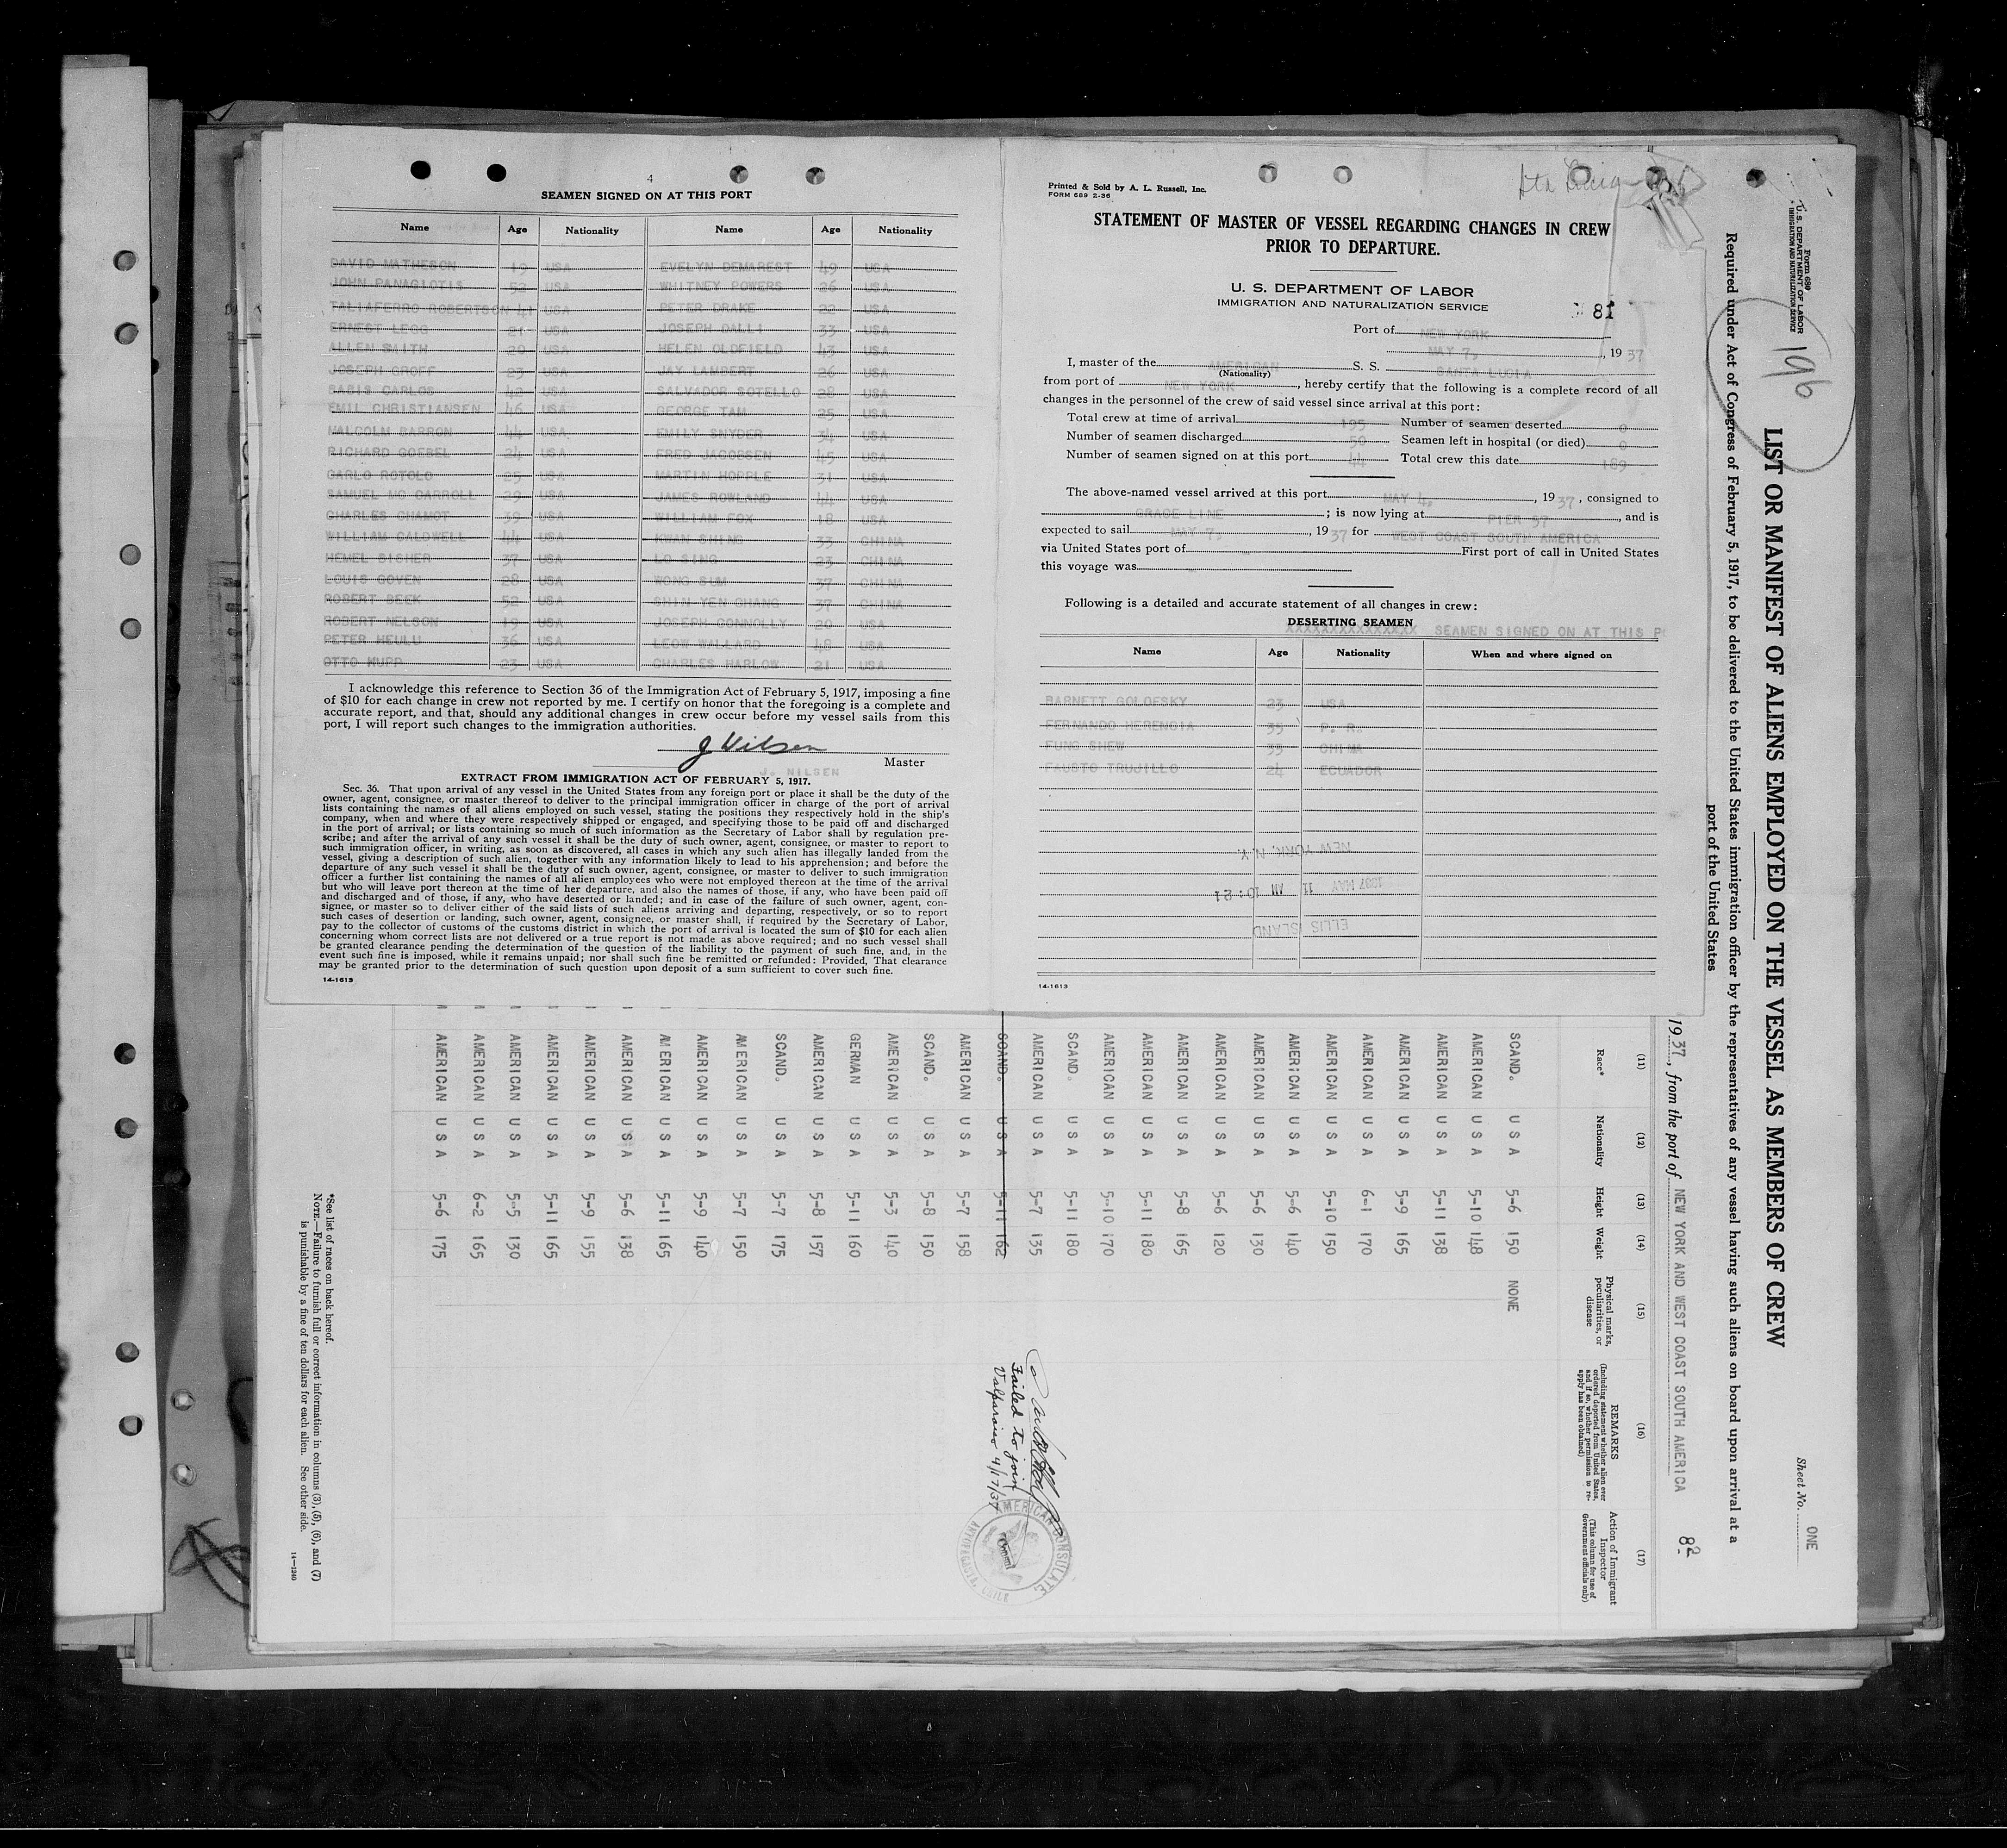 4
SEAMEN SIGNED ON AT THIS PORT
Name Age Nationality Name Age Nationality
DAVID MATHESON 19 USA EVELYN DEMAREST 49 USA
JOHN PANAGIOTIS 52 USA WHITNEY POWERS 26 USA
TALIAFERRO ROBERTSON 41 USA PETER DRAKE 22 USA
ERNEST LEGG 21 USA JOSEPH DALLI 33 USA
ALLEN SMITH 20 USA HELEN OLDFIELD 43 USA
JOSEPH GROFF 23 USA JAY LAMBERT 26 USA
BABIS CARLOS 42 USA SALVADOR SOTELLO 28 USA
EMIL CHRISTIANSEN 46 USA GEORGE TAM 25 USA
MALCOLM BARRON 44 USA EMILY SNYDER 34 USA
RICHARD GOEBEL 24 USA FRED JACOBSEN 45 USA
CARLO ROTOLO 25 USA MARTIN HOPPLE 31 USA
SAMUEL MC CARROLL 29 USA JAMES ROWLAND 44 USA
CHARLES CHAMOT 39 USA WILLIAM FOX 18 USA
WILLIAM CALDWELL 44 USA KWAN SHING 33 CHINA
HEMEL BISHER 37 USA LO SING 23 CHINA
LOUIS GOVEN 28 USA WONG SUM 37 CHINA
ROBERT BEEK 52 USA SHIN YEN CHANG 37 CHINA
ROBERT NELSON 19 USA JOSEPH CONNOLLY 20 USA
PETER HEULU 36 USA LEON WALLARD 48 USA
OTTO KUPP 23 USA CHARLES HARLOW 21 USA
I acknowledge this reference to Section 36 of the Immigration Act of February 5, 1917, imposing a fine
of $10 for each change in crew not reported by me. I certify on honor that the foregoing is a complete and
accurate report, and that, should any additional changes in crew occur before my vessel sails from this
port, I will report such changes to the immigration authorities.
J Nilsen
J. NILSEN Master
EXTRACT FROM IMMIGRATION ACT OF FEBRUARY 5, 1917.
Sec. 36. That upon arrival of any vessel in the United States from any foreign port or place it shall be the duty of the
owner, agent, consignee, or master thereof to deliver to the principal immigration officer in charge of the port of arrival
lists containing the names of all aliens employed on such vessel, stating the positions they respectively hold in the ship's
company, when and where they were respectively shipped or engaged, and specifying those to be paid off and discharged
in the port of arrival; or lists containing so much of such information as the Secretary of Labor shall by regulation pre-
scribe; and after the arrival of any such vessel it shall be the duty of such owner, agent, consignee, or master to report to
such immigration officer, in writing, as soon as discovered, all cases in which any such alien has illegally landed from the
vessel, giving a description of such alien, together with any information likely to lead to his apprehension; and before the
departure of any such vessel it shall be the duty of such owner, agent, consignee, or master to deliver to such immigration
officer a further list containing the names of all alien employees who were not employed thereon at the time of the arrival
but who will leave port thereon at the time of her departure, and also the names of those, if any, who have been paid off
and discharged and of those, if any, who have deserted or landed; and in case of the failure of such owner, agent, con-
signee, or master so to deliver either of the said lists of such aliens arriving and departing, respectively, or so to report
such cases of desertion or landing, such owner, agent, consignee, or master shall, if required by the Secretary of Labor,
pay to the collector of customs of the customs district in which the port of arrival is located the sum of $10 for each alien
concerning whom correct lists are not delivered or a true report is not made as above required; and no such vessel shall
be granted clearance pending the determination of the question of the liability to the payment of such fine, and, in the
event such fine is imposed, while it remains unpaid; nor shall such fine be remitted or refunded: Provided, That clearance
may be granted prior to the determination of such question upon deposit of a sum sufficient to cover such fine.
14-1613
Printed & Sold by A. L. Russell, Inc.
FORM 689 2-36
Sta Lucia
STATEMENT OF MASTER OF VESSEL REGARDING CHANGES IN CREW
PRIOR TO DEPARTURE.
U. S. DEPARTMENT OF LABOR
IMMIGRATION AND NATURALIZATION SERVICE
81
Port of NEW YORK
MAY 7, , 19 37
I, master of the AMERICAN S. S. SANTA LUCIA
(Nationality)
from port of NEW YORK , hereby certify that the following is a complete record of all
changes in the personnel of the crew of said vessel since arrival at this port:
Total crew at time of arrival 195 Number of seamen deserted 0
Number of seamen discharged 50 Seamen left in hospital (or died) 0
Number of seamen signed on at this port 44 Total crew this date 189
The above-named vessel arrived at this port MAY 4, , 19 37 , consigned to
GRACE LINE ; is now lying at PIER 57 , and is
expected to sail MAY 7, , 19 37 for WEST COAST SOUTH AMERICA
via United States port of First port of call in United States
this voyage was
Following is a detailed and accurate statement of all changes in crew:
DESERTING SEAMEN
XXXXXXXXXXXXXXXX SEAMEN SIGNED ON AT THIS P
Name Age Nationality When and where signed on
BARNETT GOLOFSKY 23 USA
FERNANDO HERENCIA 35 P. R.
FUNG SHEW 33 CHINA
FAUSTO TRUJILLO 24 ECUADOR
NEW YORK, N.Y.
1937 MAY 11 AM 10:21
ELLIS ISLAND
14-1613
Form 689
U. S. DEPARTMENT OF LABOR
IMMIGRATION AND NATURALIZATION SERVICE
196
LIST OR MANIFEST OF ALIENS EMPLOYED ON THE VESSEL AS MEMBERS OF CREW
Sheet No. ONE
Required under Act of Congress of February 5, 1917, to be delivered to the United States immigration officer by the representatives of any vessel having such aliens on board upon arrival at a
port of the United States
1937, from the port of NEW YORK AND WEST COAST SOUTH AMERICA
82
(11) (12) (13) (14) (15) (16) (17)
Race* Nationality Height Weight Physical marks, peculiarities, or disease REMARKS (Including statement whether alien ever ordered deported from United States, and if so, whether permission to re-apply has been obtained) Action of Immigrant Inspector (This column for use of Government officials only)
SCAND. U S A 5-6 150 NONE
AMERICAN U S A 5-10 148
AMERICAN U S A 5-11 138
AMERICAN U S A 5-9 165
AMERICAN U S A 6-1 170
AMERICAN U S A 5-10 150
AMERICAN U S A 5-6 140
AMERICAN U S A 5-6 130
AMERICAN U S A 5-6 120
AMERICAN U S A 5-8 165
AMERICAN U S A 5-11 180
AMERICAN U S A 5-10 170
SCAND. U S A 5-11 180
AMERICAN U S A 5-7 135
SCAND. U S A 5-11 162
Failed to join
Valparaiso 4/17/37
AMERICAN CONSULATE,
ANTOFAGASTA, CHILE
AMERICAN U S A 5-7 158
SCAND. U S A 5-8 150
AMERICAN U S A 5-3 140
GERMAN U S A 5-11 160
AMERICAN U S A 5-8 157
SCAND. U S A 5-7 175
AMERICAN U S A 5-7 150
AMERICAN U S A 5-9 140
AMERICAN U S A 5-11 165
AMERICAN U S A 5-6 138
AMERICAN U S A 5-9 155
AMERICAN U S A 5-11 165
AMERICAN U S A 5-5 130
AMERICAN U S A 6-2 165
AMERICAN U S A 5-6 175
*See list of races on back hereof.
NOTE.—Failure to furnish full or correct information in columns (3), (5), (6), and (7)
is punishable by a fine of ten dollars for each alien. See other side.
14-1240